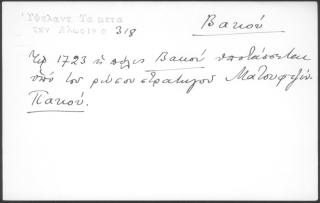 Ὑψηλάντ. Τα μετα
την Ἅλωσιν σ 318
Βακού
Τῷ 1723 ἡ πόλις Βακού ὑποτάσσεται
ὑπό του ρώσου στρατηγού Ματουφζίν
Πακού.